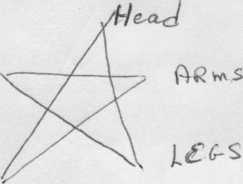 Head
ARMS
LEGS